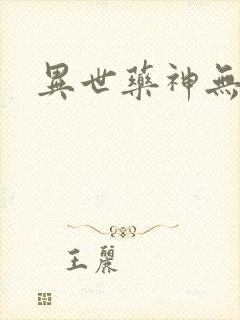 異世藥神無
王麗